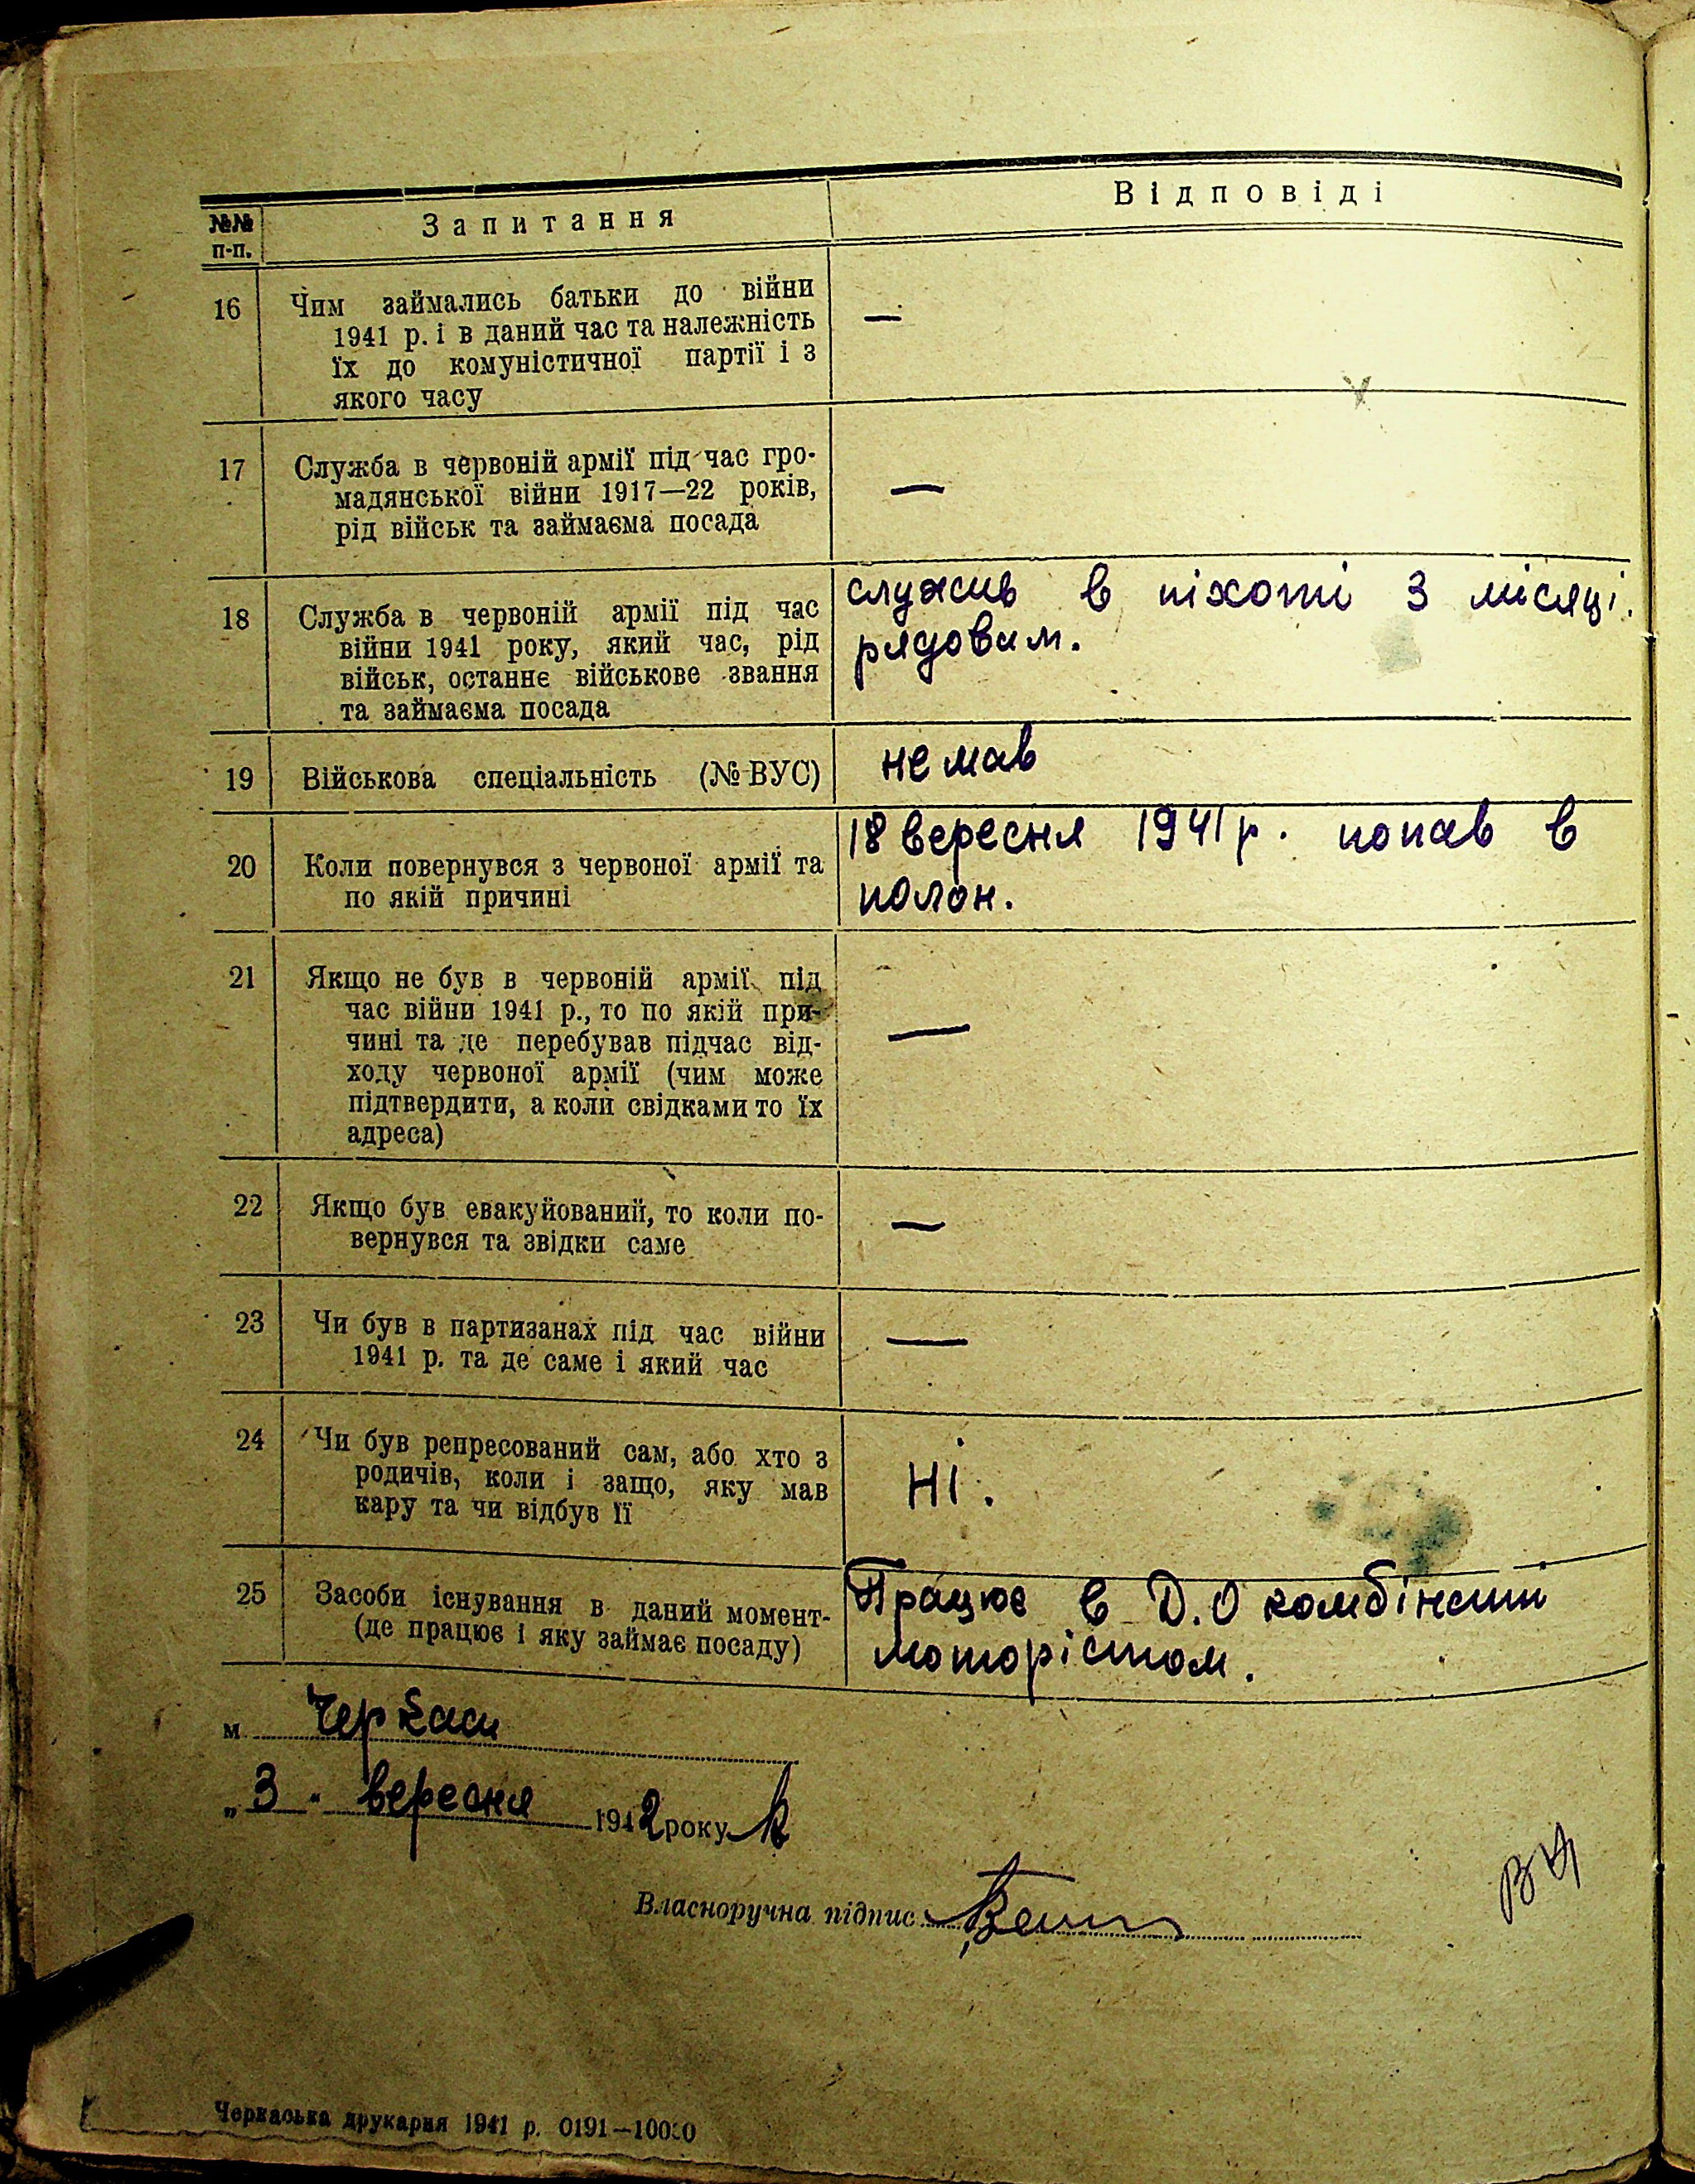 №№ п-п.
Запитання
Відповіді
16
Чим займались батьки до війни
1941 р. і в даний час та належність
їх до комуністичної партії і з
якого часу
—
17
Служба в червоній армії під час гро-
мадянської війни 1917—22 років,
рід військ та займаєма посада
—
18
Служба в червоній армії під час
війни 1941 року, який час, рід
військ, останнє військове звання
та займаєма посада
служив в піхоті 3 місяці.
рядовим.
19
Військова спеціальність (№ ВУС)
не мав
20
Коли повернувся з червоної армії та
по якій причині
18 вересня 1941 р. попав в
полон.
21
Якщо не був в червоній армії під
час війни 1941 р., то по якій при-
чині та де перебував підчас від-
ходу червоної армії (чим може
підтвердити, а коли свідками то їх
адреса)
—
22
Якщо був евакуйований, то коли по-
вернувся та звідки саме
—
23
Чи був в партизанах під час війни
1941 р. та де саме і який час
—
24
Чи був репресований сам, або хто з
родичів, коли і защо, яку мав
кару та чи відбув її
Ні.
25
Засоби існування в даний момент-
(де працює і яку займає посаду)
Працює в Д.О комбінаті
мотористом.
м Черкаси
„3" вересня 1942 року
Власноручна підпис
Черкаська друкарня 1941 р. 0191—10000